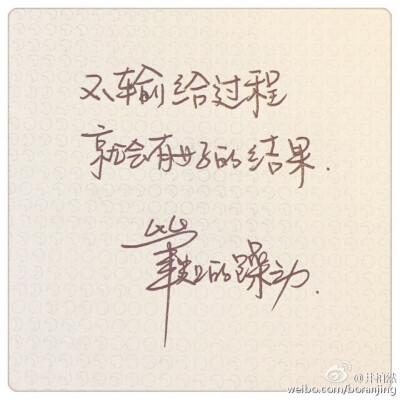 不输给过程
就会有好的结果.
掌上的躁动.
@井柏然
weibo.com/boranjing